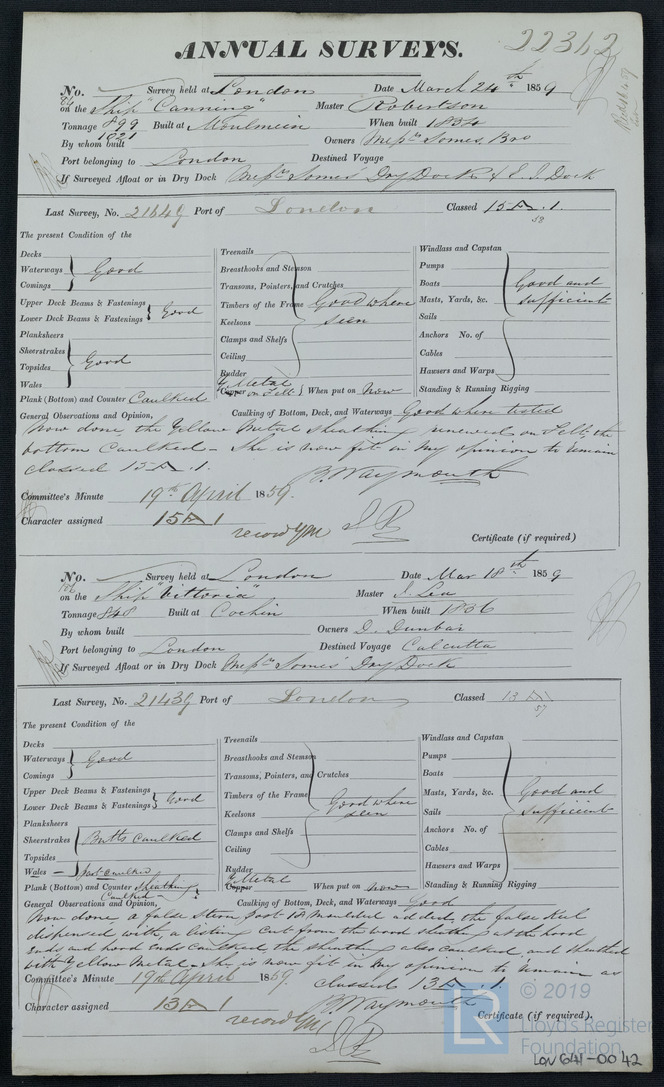 22312
ANNUAL SURVEYS.
No. Survey held at London Date March 24th 1859
on the Ship "Canning" Master Robertson
Tonnage 899 Built at Moulmein When built 1834
1021
By whom built Owners Messrs Somes Bro
Port belonging to London Destined Voyage
If Surveyed Afloat or in Dry Dock Messrs Somes' Dry Dock & E. I. Dock
Last Survey, No. 21649 Port of London Classed 15 A .1.
58
The present Condition of the
Decks
Waterways Good
Comings
Upper Deck Beams & Fastenings
Lower Deck Beams & Fastenings Good
Planksheers
Sheerstrakes
Topsides Good
Wales
Plank (Bottom) and Counter Caulked
Treenails
Breasthooks and Stemson
Transoms, Pointers, and Crutches
Timbers of the Frame Good where
Keelsons seen
Clamps and Shelfs
Ceiling
Rudder
Y Metal
Copper on Felt When put on Now
Windlass and Capstan
Pumps
Boats Good and
Masts, Yards, &c. sufficient
Sails
Anchors No. of
Cables
Hawsers and Warps
Standing & Running Rigging
General Observations and Opinion, Caulking of Bottom, Deck, and Waterways Good when tested
Now done, the Yellow Metal Sheathing renewed on Felt, the
bottom Caulked - She is now fit in my opinion to remain
classed 15 A .1.
B. Waymouth
Committee's Minute 19th April 1859.
Character assigned 15 A 1
record YM
Certificate (if required)
No. Survey held at London Date Mar 18th 1859
on the Ship "Vittoria" Master
Tonnage 848 Built at Cochin When built 1836
By whom built Owners D. Dunbar
Port belonging to London Destined Voyage Calcutta
If Surveyed Afloat or in Dry Dock Messrs Somes' Dry Dock
Last Survey, No. 21439 Port of London Classed 13 A 1
57
The present Condition of the
Decks
Waterways Good
Comings
Upper Deck Beams & Fastenings
Lower Deck Beams & Fastenings Good
Planksheers
Sheerstrakes Butts caulked
Topsides
Wales part caulked
Plank (Bottom) and Counter Sheathing
Caulked
Treenails
Breasthooks and Stemson
Transoms, Pointers, and Crutches
Timbers of the Frame Good where
Keelsons seen
Clamps and Shelfs
Ceiling
Rudder
Y Metal
Copper When put on now
Windlass and Capstan
Pumps
Boats
Masts, Yards, &c. Good and
Sails sufficient
Anchors No. of
Cables
Hawsers and Warps
Standing & Running Rigging
General Observations and Opinion, Caulking of Bottom, Deck, and Waterways Good
Now done, a false Stern post 18 moulded added, the false Keel
dispensed with, a listing cut from the wood sheathing at the hood
ends and hood ends caulked, the sheathing also caulked and sheathed
with Yellow Metal - She is now fit in my opinion to remain as
classed 13 A .1.
Committee's Minute 19th April 1859.
B. Waymouth
Character assigned 13 A 1
record YM
Certificate (if required).
© 2019
LR
Lloyd's Register
Foundation
LON 641-0042